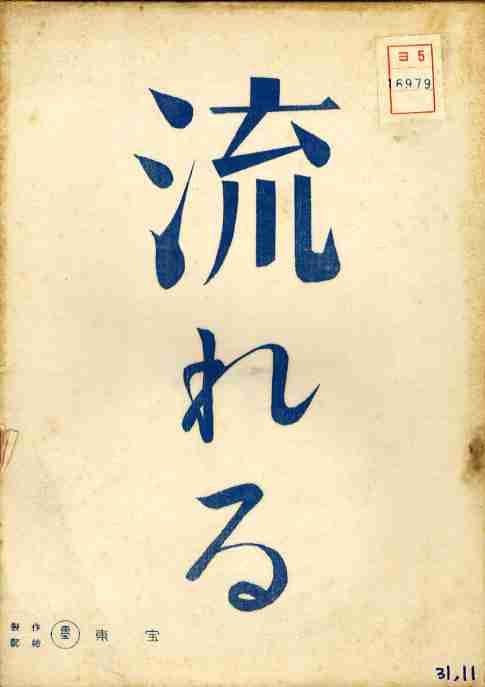 ヨ5
16979
流れる
製作
配給
東宝
31,11